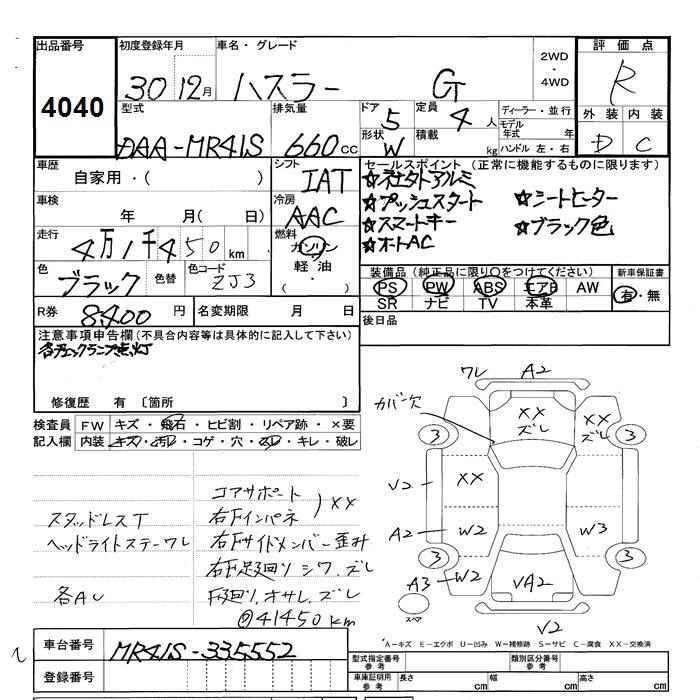 出品番号 初度登録年月 車名・グレード 2WD・4WD 評価点
4040 30 12月 ハスラー G R
型式 排気量 ドア 定員 ディーラー・並行 外装 内装
DAA-MR41S 660cc 5 4人 モデル年式 年 D C
形状 W 積載 kg ハンドル 左・右
車歴 シフト セールスポイント(正常に機能するものに限ります)
自家用・( ) IAT
☆社外アルミ
☆プッシュスタート ☆シートヒーター
☆スマートキー ☆ブラック色
☆オートAC
車検 冷房
年 月(日) AAC
走行 燃料
4万1千450km ガソリン
軽油
・( )
色 色替 色コード
ブラック ZJ3
装備品(純正品に限り○をつけてください) 新車保証書
PS PW ABS エアB AW 有・無
SR ナビ TV 本革
R券 8400円 名変期限 月 日 後日品
注意事項申告欄(不具合内容等は具体的に記入して下さい)
各チェックランプ点灯
修復歴 有〔箇所 〕
検査員 FW キズ・飛石・ヒビ割・リペア跡・×要
記入欄 内装 キズ・汚レ・コゲ・穴・スレ・キレ・破レ
コアサポート
スタッドレスT 右Fインパネ )XX
ヘッドライトステーワレ 右Fサイドメンバー歪み
右F足廻り シワ.ズレ
各AU F廻り.オサレ.ズレ
@41450km
ワレ A2
カバー欠 XX ズレ XX ズレ
3 3
V2 XX
A2 W2 W3
3 3
A3 W2 VA2
スペア
V2
A－キズ E－エクボ U－凹み W－補修跡 S－サビ C－腐食 XX－交換済
車台番号 MR41S-335552
登録番号
型式指定番号 参考 類別区分番号 参考
車庫証明用 参考 長さ cm 幅 cm 高さ cm